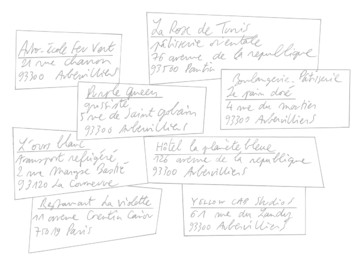 Auto. Ecole Feu Vert
21 rue charron
93300 Aubervilliers
La Rose de Tunis
pâtisserie orientale
76 avenue de la republique
93500 Pantin
Purple Queen
grossiste
5 rue de Saint gobain
93300 Aubervilliers
Boulangerie. Pâtisserie
Le pain doré
4 rue du moutier
93300 Aubervilliers
L'ours blanc
transport réfrigéré
2 rue Maryse Bastié
93120 La Corneuve
Hôtel la planète bleue
126 avenue de la république
93300 Aubervilliers
Restaurant La violette
11 avenue Corentin Cariou
75019 Paris
YELLOW CAB Studios
61 rue du Landy
93300 Aubervilliers